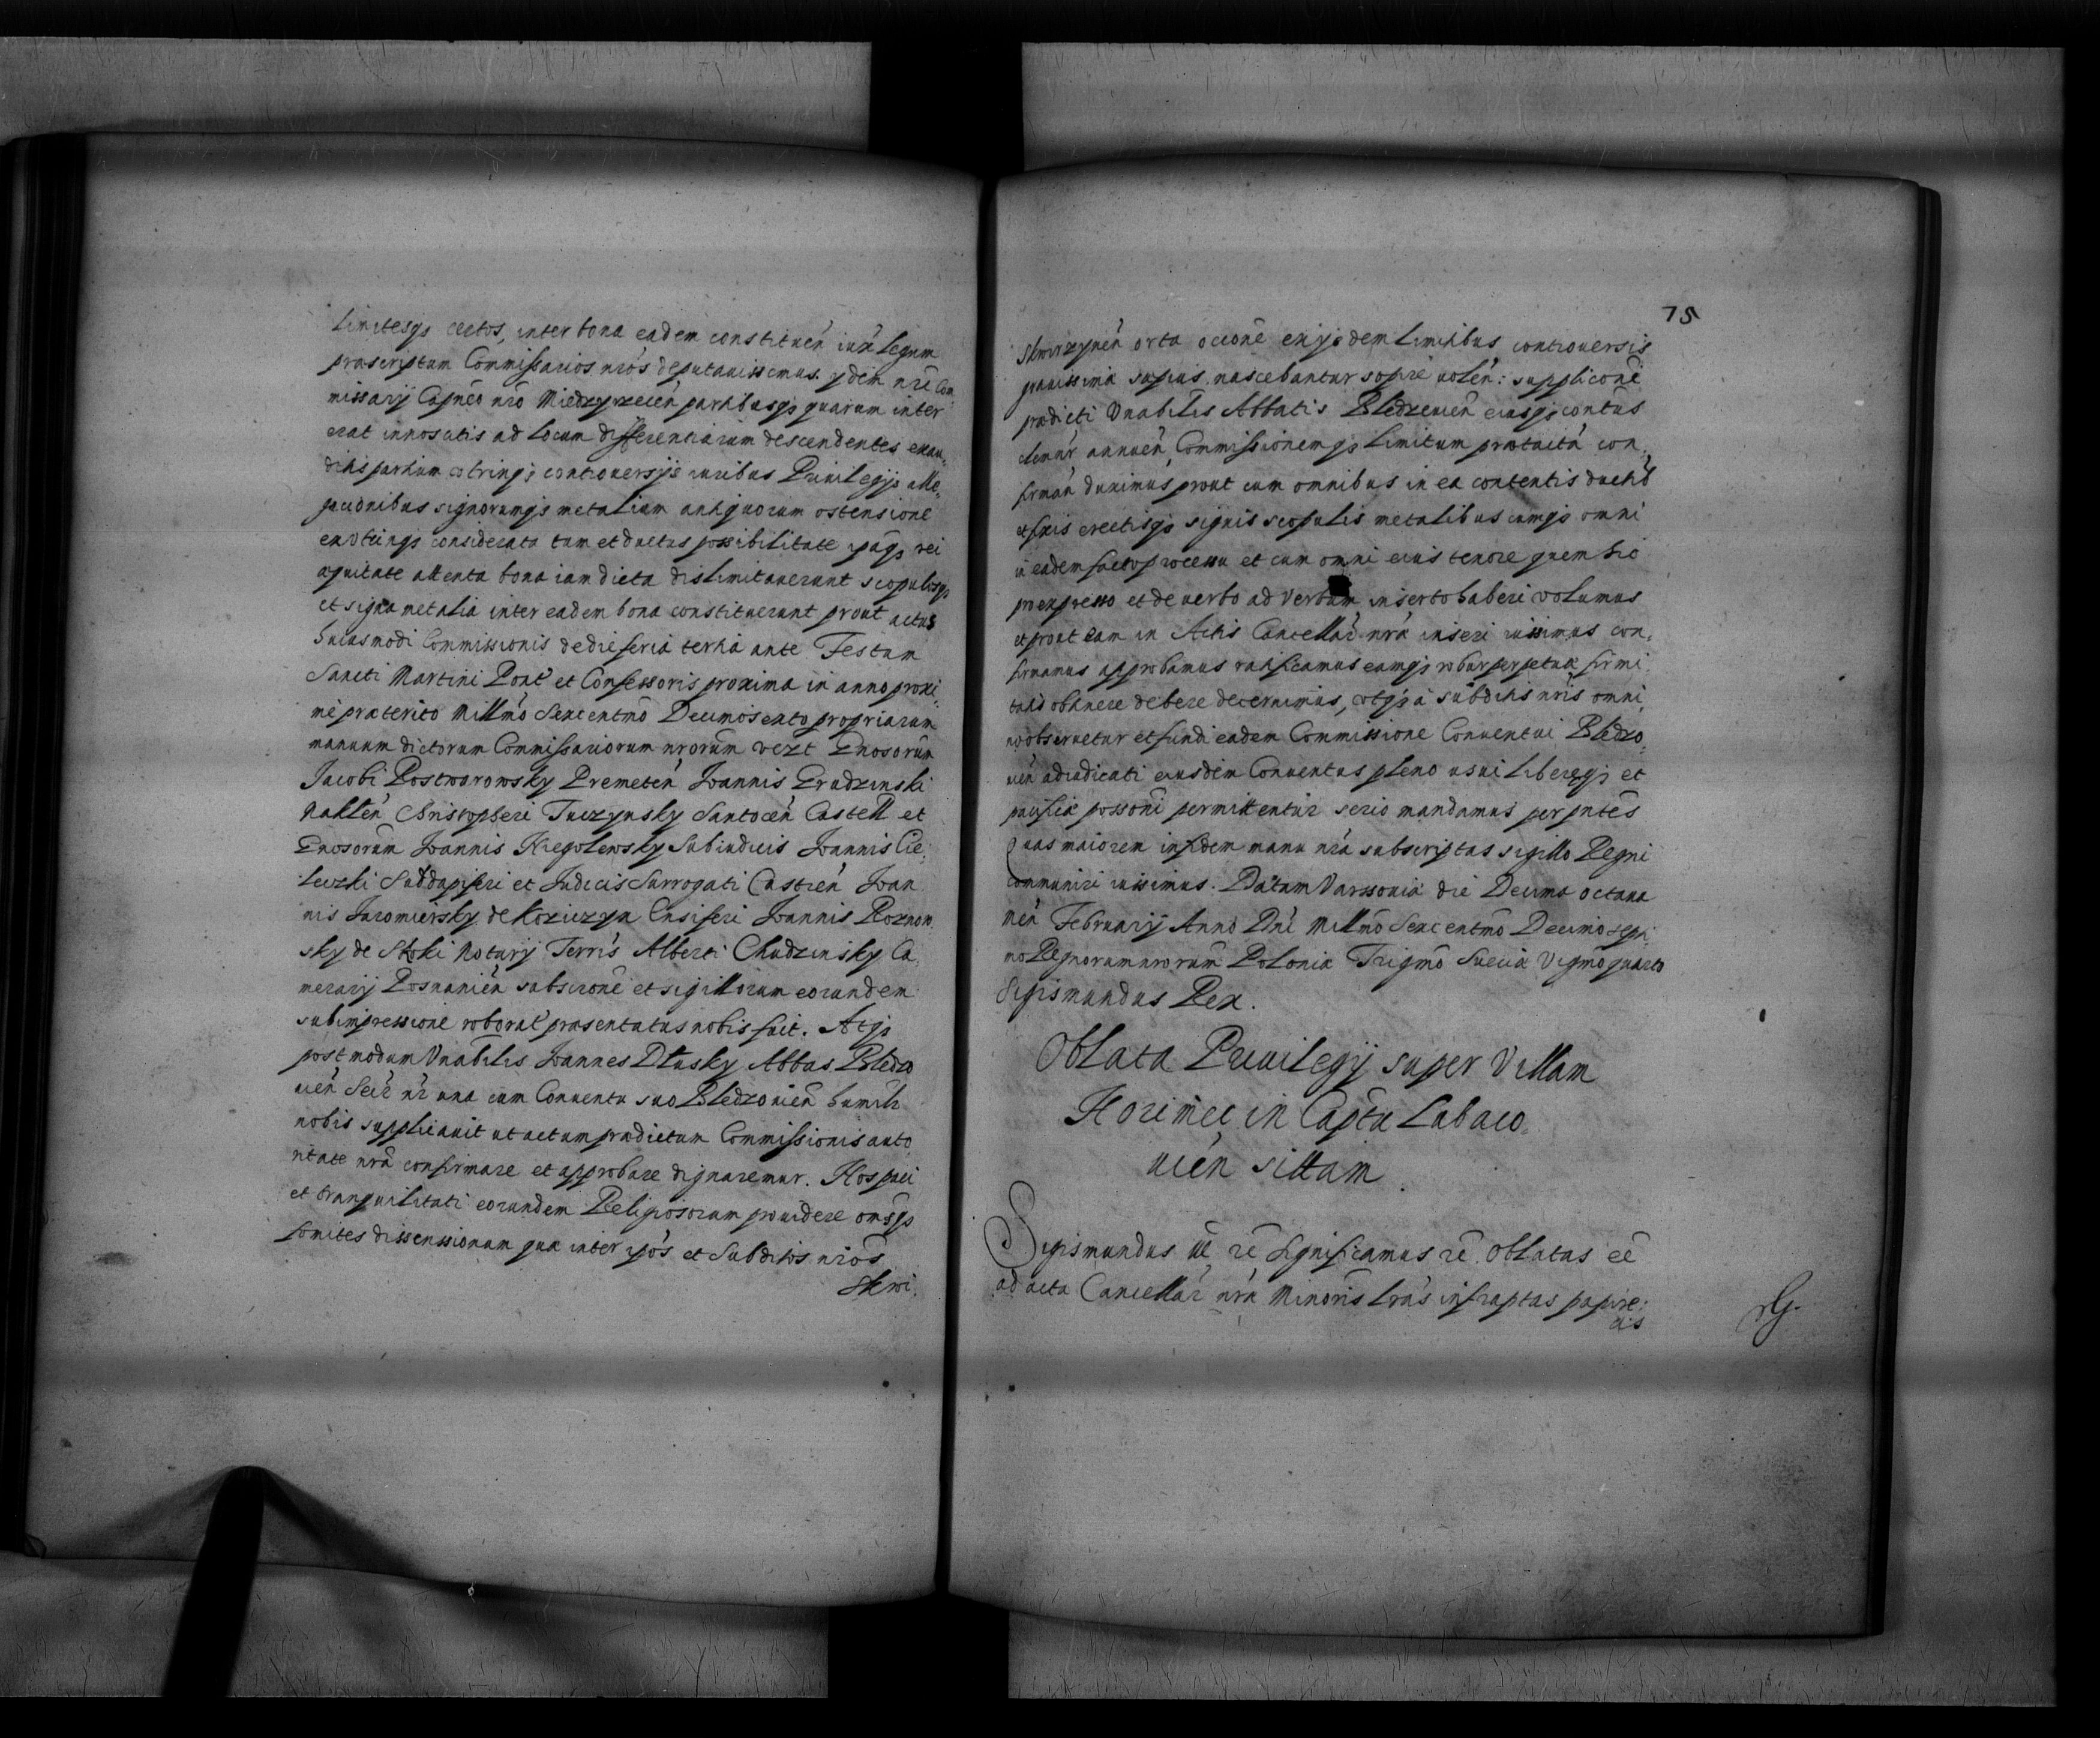 Limitesqs certos, inter bona eadem constituen̄ iux̄ legum
præscriptum Commissarios nr̄os deputauissemus. ydem nr̄i Com
missarij Capn̄eo nr̄o Miedzyrzecen̄ partibusqs quarum inter
erat innosatis ad Locum differentiarum descendentes exau„
ditis partium vtrinqs controuersijs iuribus Priuilegijs alle„
gationibus signorumqs metalium antiquorum ostensione
vtrinqs considerata tum et ductus possibilitate ipāqs rei
æquitate attenta bona iam dicta dislimitauerunt scopulosqs
et signa metalia inter eadem bona constituerunt prout actus
huiusmodi Commissionis de die feria tertia ante Festum
Sancti Martini Pont̄ et Confessoris proxima in anno proxi„
mè præterito Millm̄o Sexcentm̄o Decimosexto propriarum
manuum dictorum Commissariorum nrorum̄ vezt Gnosorum̄
Jacobi Postworowsky Premeten̄ Joannis Grudzinski
Naklen̄ Christopheri Tuczynsky Santocen̄ Castell et
Gnosorum̄ Joannis Niegolewsky Subiudicis Joannis Cie„
leczki Subdapiferi et Judicis Surrogati Castren̄ Joan
nis Jaromiersky de Koziczyn Ensiferi Joannis Roznow
sky de Stoki Notarij Terris̄ Alberti Chudzinsky Ca„
merarij Posnanien̄ subscrone̅ et sigillorum eorundem
subimpressione roborat̄ præsentatus nobis fuit. Atqs
postmodum Vnabilis Joannes Dłusky Abbas Bledzo
uien̄ Secr̄ nr̄ una cum Conuentu suo Bledzouien̄ humilr̄
nobis supplicauit ut actum prædictum Commissionis auto„
ritate nrā confirmare et approbare dignaremur. Nos paci
et tranquilitati eorundem Religiosorum prouidere om̄sqs
fomites dissenssionum quæ inter ip̄os et Subditos nr̄os
Skwi„
75
Skwirzynen̄ orta occone̅ exijsdem limitibus controuersis
grauissima sæpius nascebantur sopire uolen̄: supplicone̅
prædicti Vnabilis Abbatis Bledzeuien̄ eiusqs conṯus
clem̄r annuen̄ Commissionemqs limitum prætactā con„
firman̄ duximus prout cum omnibus in ea contentis ductib
et factis erectisqs signis scopulis metalibus cumqs omni
in eadem facto processu et cum omni eius tenore quem hic
pro expresso et de uerbo ad Verbum inserto haberi volumus
et prout eam in Actis Cancellar̄ nrā inseri iussimus con„
firmamus approbamus ratificamus eamqs robur perpetuæ firmi
tatis obtinere debere decernimus, vtqs à subditis nr̄is omni„
no obseruetur et fundi eadem Commissione Conuentui Bledzo„
uien̄ adiudicati eiusdem Conuentus pleno usui liberæqs et
pacificæ posson̄i permittentur̄ serio mandamus per pn̄tes
quas maiorem in fidem manu nrā subscriptas sigillo Regni
communiri iussimus. Datum Varssouiæ die Decima octaua
Men̄ Februarij Anno Dn̄i Millm̄o Sexcentm̄o Decimosepti
mo Regnorum nrorum̄ Poloniæ Trigm̄o Sueciæ Vigm̄o quarto
Sigismundus Rex.
Oblata Priuilegij super Villam
Horimec in Cap̄tu Lubaco„
uien̄ sittam.
Sigismundus III rē Significamus rē. Oblatas eē
ad acta Cancellar̄ nrā Minoris̄ Lrās infraptas papire„
as